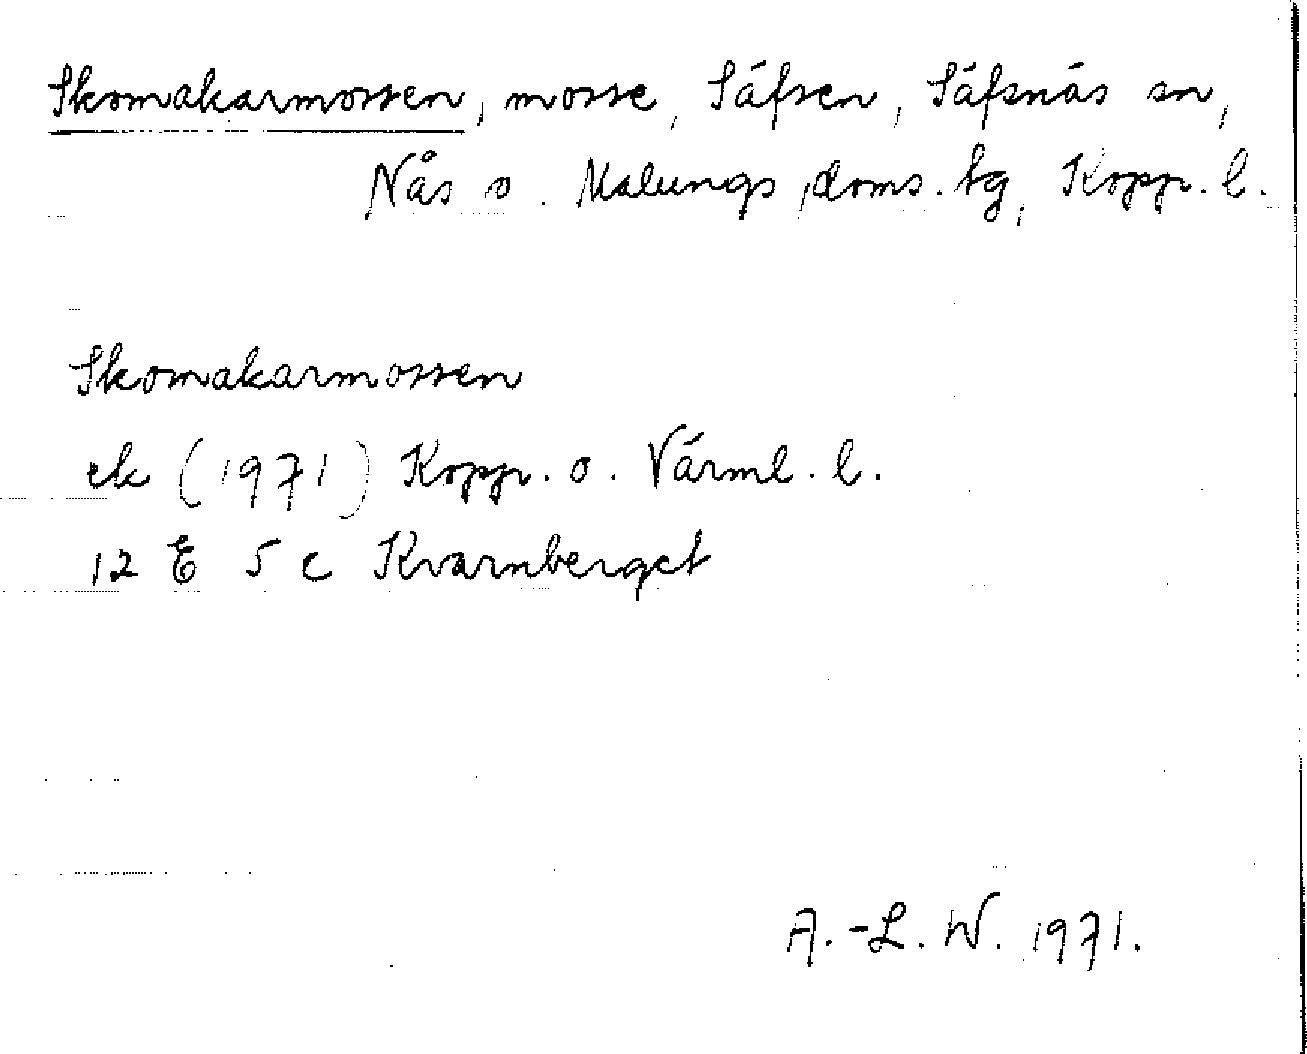 Skomakarmossen, mosse, Säfsen, Säfsnäs sn,
Nås o. Malungs doms. tg, Kopp. l.
Skomakarmossen
ek (1971) Kopp. o. Värml. l.
12 E 5 c Kvarnberget
A.-L. W. 1971.